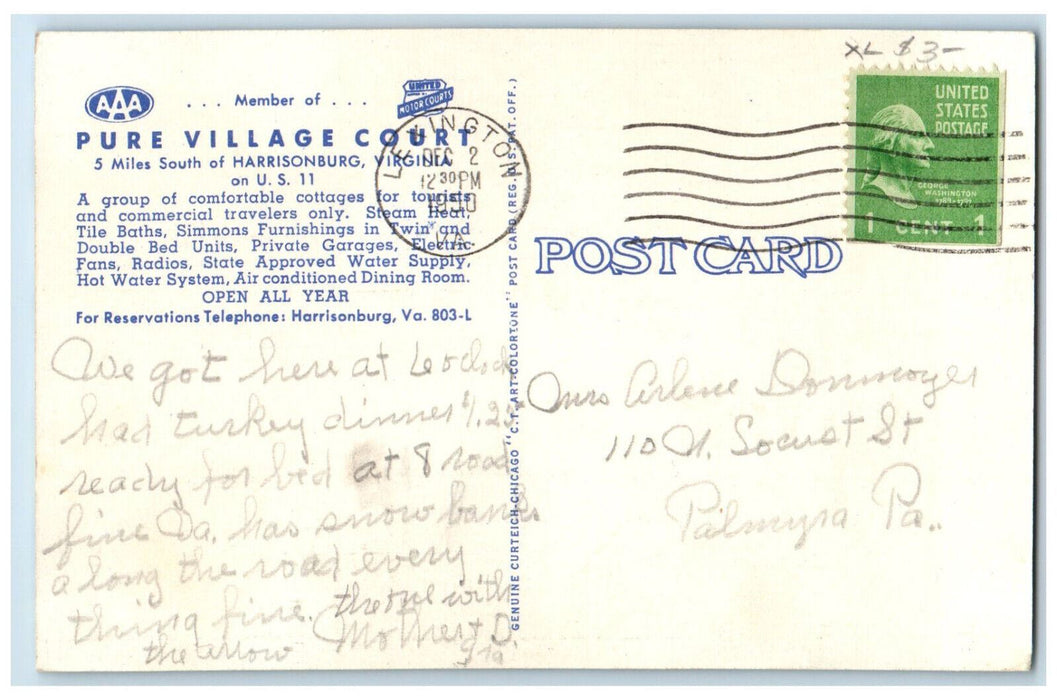 XL $3-
AAA
. . . Member of . . .
UNITED
MOTOR COURTS
PURE VILLAGE COURT
5 Miles South of HARRISONBURG, VIRGINIA
on U. S. 11
A group of comfortable cottages for tourists
and commercial travelers only. Steam Heat,
Tile Baths, Simmons Furnishings in Twin and
Double Bed Units, Private Garages, Electric
Fans, Radios, State Approved Water Supply,
Hot Water System, Air conditioned Dining Room.
OPEN ALL YEAR
For Reservations Telephone: Harrisonburg, Va. 803-L
LEXINGTON
DEC 2
12 30 PM
VA.
UNITED
STATES
POSTAGE
GEORGE
WASHINGTON
1789-1797
1 CENT 1
POST CARD
GENUINE CURTEICH-CHICAGO "C.T. ART-COLORTONE" POST CARD (REG. U.S. PAT. OFF.)
We got here at 6 oclock
had turkey dinner 1.25
ready for bed at 8 road
fine Pa. has snow banks
along the road every
thing fine. the one with
the arrow
Mother & D.
Mrs Arlene Donmoyer
110 N. Locust St
Palmyra Pa..